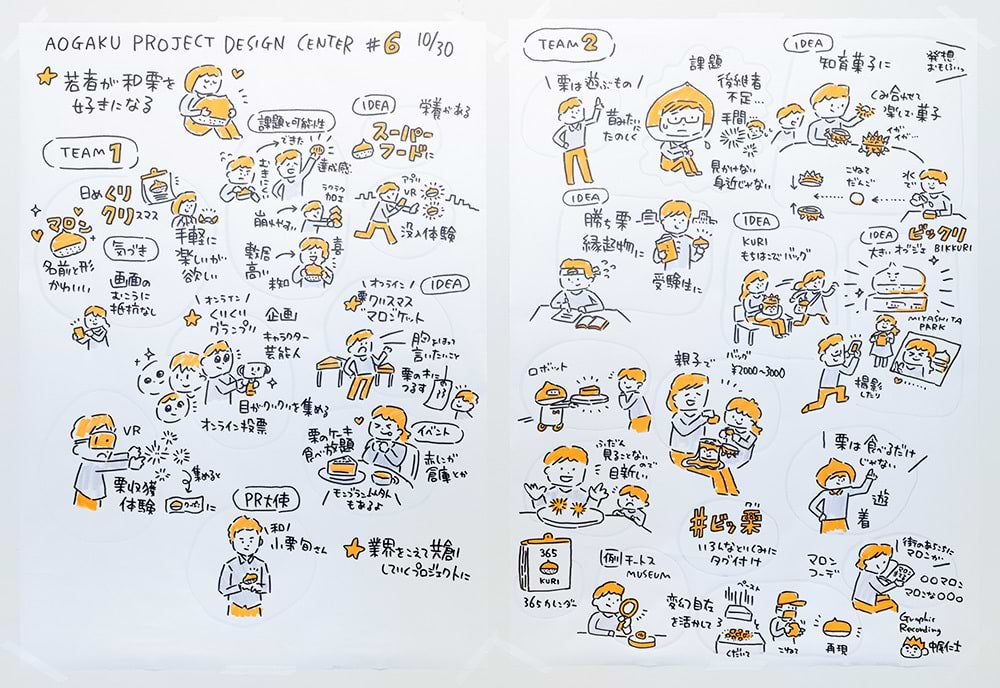 AOGAKU PROJECT DESIGN CENTER #6 10/30
若者が和栗を
好きになる
TEAM1
日めくり
クリスマス
マロン
名前と形
かわいい
気づき
画面の
むこうに
抵抗なし
手軽に
楽しいが
欲しい
課題と可能性
むきにくい
できた
達成感
崩れやすい
ラクラク
加工
敷居
高い
未知
喜
IDEA
栄養がある
スーパー
フードに
アプリ
VR
没入体験
オンライン
くりくり
グランプリ
企画
キャラクター
芸能人
目がクリクリを集める
オンライン投票
IDEA
オンライン
栗クリスマス
マロシケット
胸をはって
言いたいこと
栗の木に
つるす
VR
栗収穫
体験
集めると
クーポンに
栗のケーキ
食べ放題
イベント
赤レンガ
倉庫とか
もあるよ
PR大使
和！
小栗旬さん
業界をこえて共創
していくプロジェクトに
TEAM2
栗は遊ぶもの
昔みたいに
たのしく
課題
後継者
不足…
手間…
見かけない
身近じゃない
IDEA
知育菓子に
発想
おもしろい…
くみ合わせて
楽しむ菓子
イガ
イガ…
こねて
だんご
水
で
IDEA
勝ち栗
縁起物に
受験生に
IDEA
KURI
もちはこびバッグ
バッグ
¥2000〜3000
IDEA
ビックリ
BIKKURI
大きいオブジェ
MIYASHITA
PARK
撮影
したり
ロボット
親子で
ふだん
見ることない
ので
目新しい
栗は食べるだけ
じゃない
遊
着
#ビッ栗
いろんなとりくみに
タグ付け
365
KURI
365カレンダー
例
チートス
MUSEUM
変幻自在
を活かして
ペースト
くだいて
こねて
再現
マロン
コーデ
街のあちこちに
マロンが
○○マロン
マロンな○○○
Graphic
Recording
中尾仁士